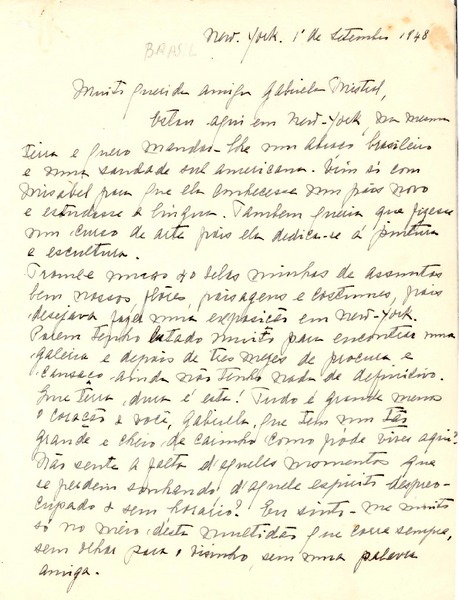 New-York, 1º de setembro 1948
BRASIL
Muito querida amiga Gabriela Mistral,
Estou aqui em New-York, na mesma
terra e quero mandar-lhe um abraço brasileiro
e uma saudade sul americana. Vim só com
Misabel para que ela conhecesse um país novo
e estudasse a língua. Tambem queria que fizesse
um curso de arte pois ela dedica-se á pintura
e escultura.
Trouxe umas 40 telas minhas de assuntos
bem nossos, flôres, paisagens e costumes, pois
desejava fazer uma exposição em New-York.
Porem tenho lutado muito para encontrar uma
galeria e depois de tres mezes de procura e
cansaço ainda não tenho nada de definitivo.
Que terra dura é esta! Tudo é grande menos
o coração e você, Gabriela, que tem um tão
grande e cheio de carinho como pode viver aqui?
Não sente a falta d'aqueles momentos que
se perdem sonhando, d'aquele espirito despreo-
cupado e sem horario? Eu sinto-me muito
só no meio desta multidão que corre sempre,
sem olhar para o visinho, sem uma palavra
amiga.